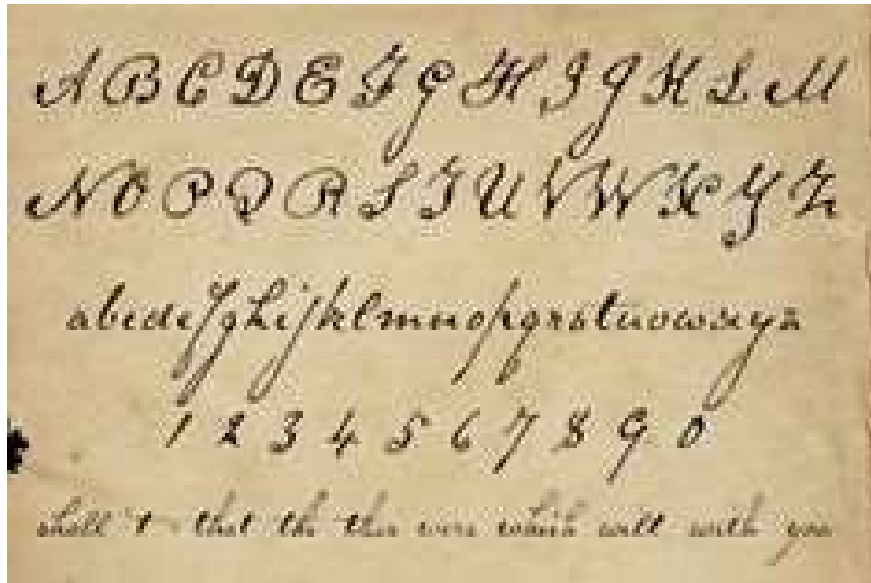 A B C D E F G H I J K L M
N O P Q R S T U V W X Y Z
abcdefghijklmnopqrstuvwxyz
1 2 3 4 5 6 7 8 9 0
shall that the were which will with you